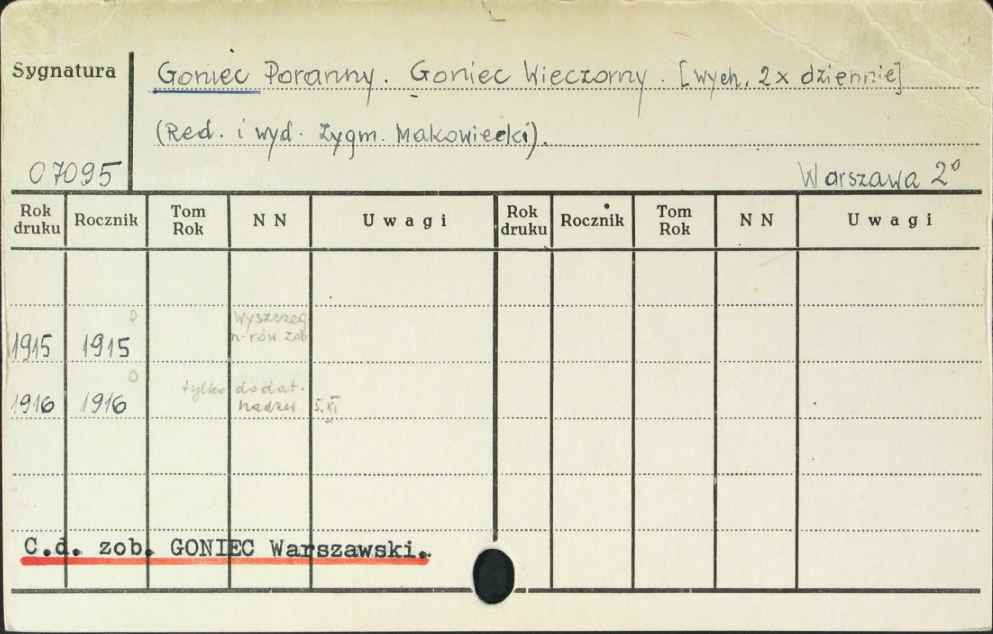 Sygnatura
Goniec Poranny. Goniec Wieczorny. [wych. 2x dziennie]
(Red. i wyd. Zygm. Makowiecki).
07095
Warszawa 2°
Rok druku Rocznik Tom Rok N N Uwagi Rok druku Rocznik Tom Rok N N Uwagi
wyszczeg
n-rów zob
1915 1915
tylko dodat.
nadzw 5.XI
1916 1916
C.d. zob. GONIEC Warszawski.